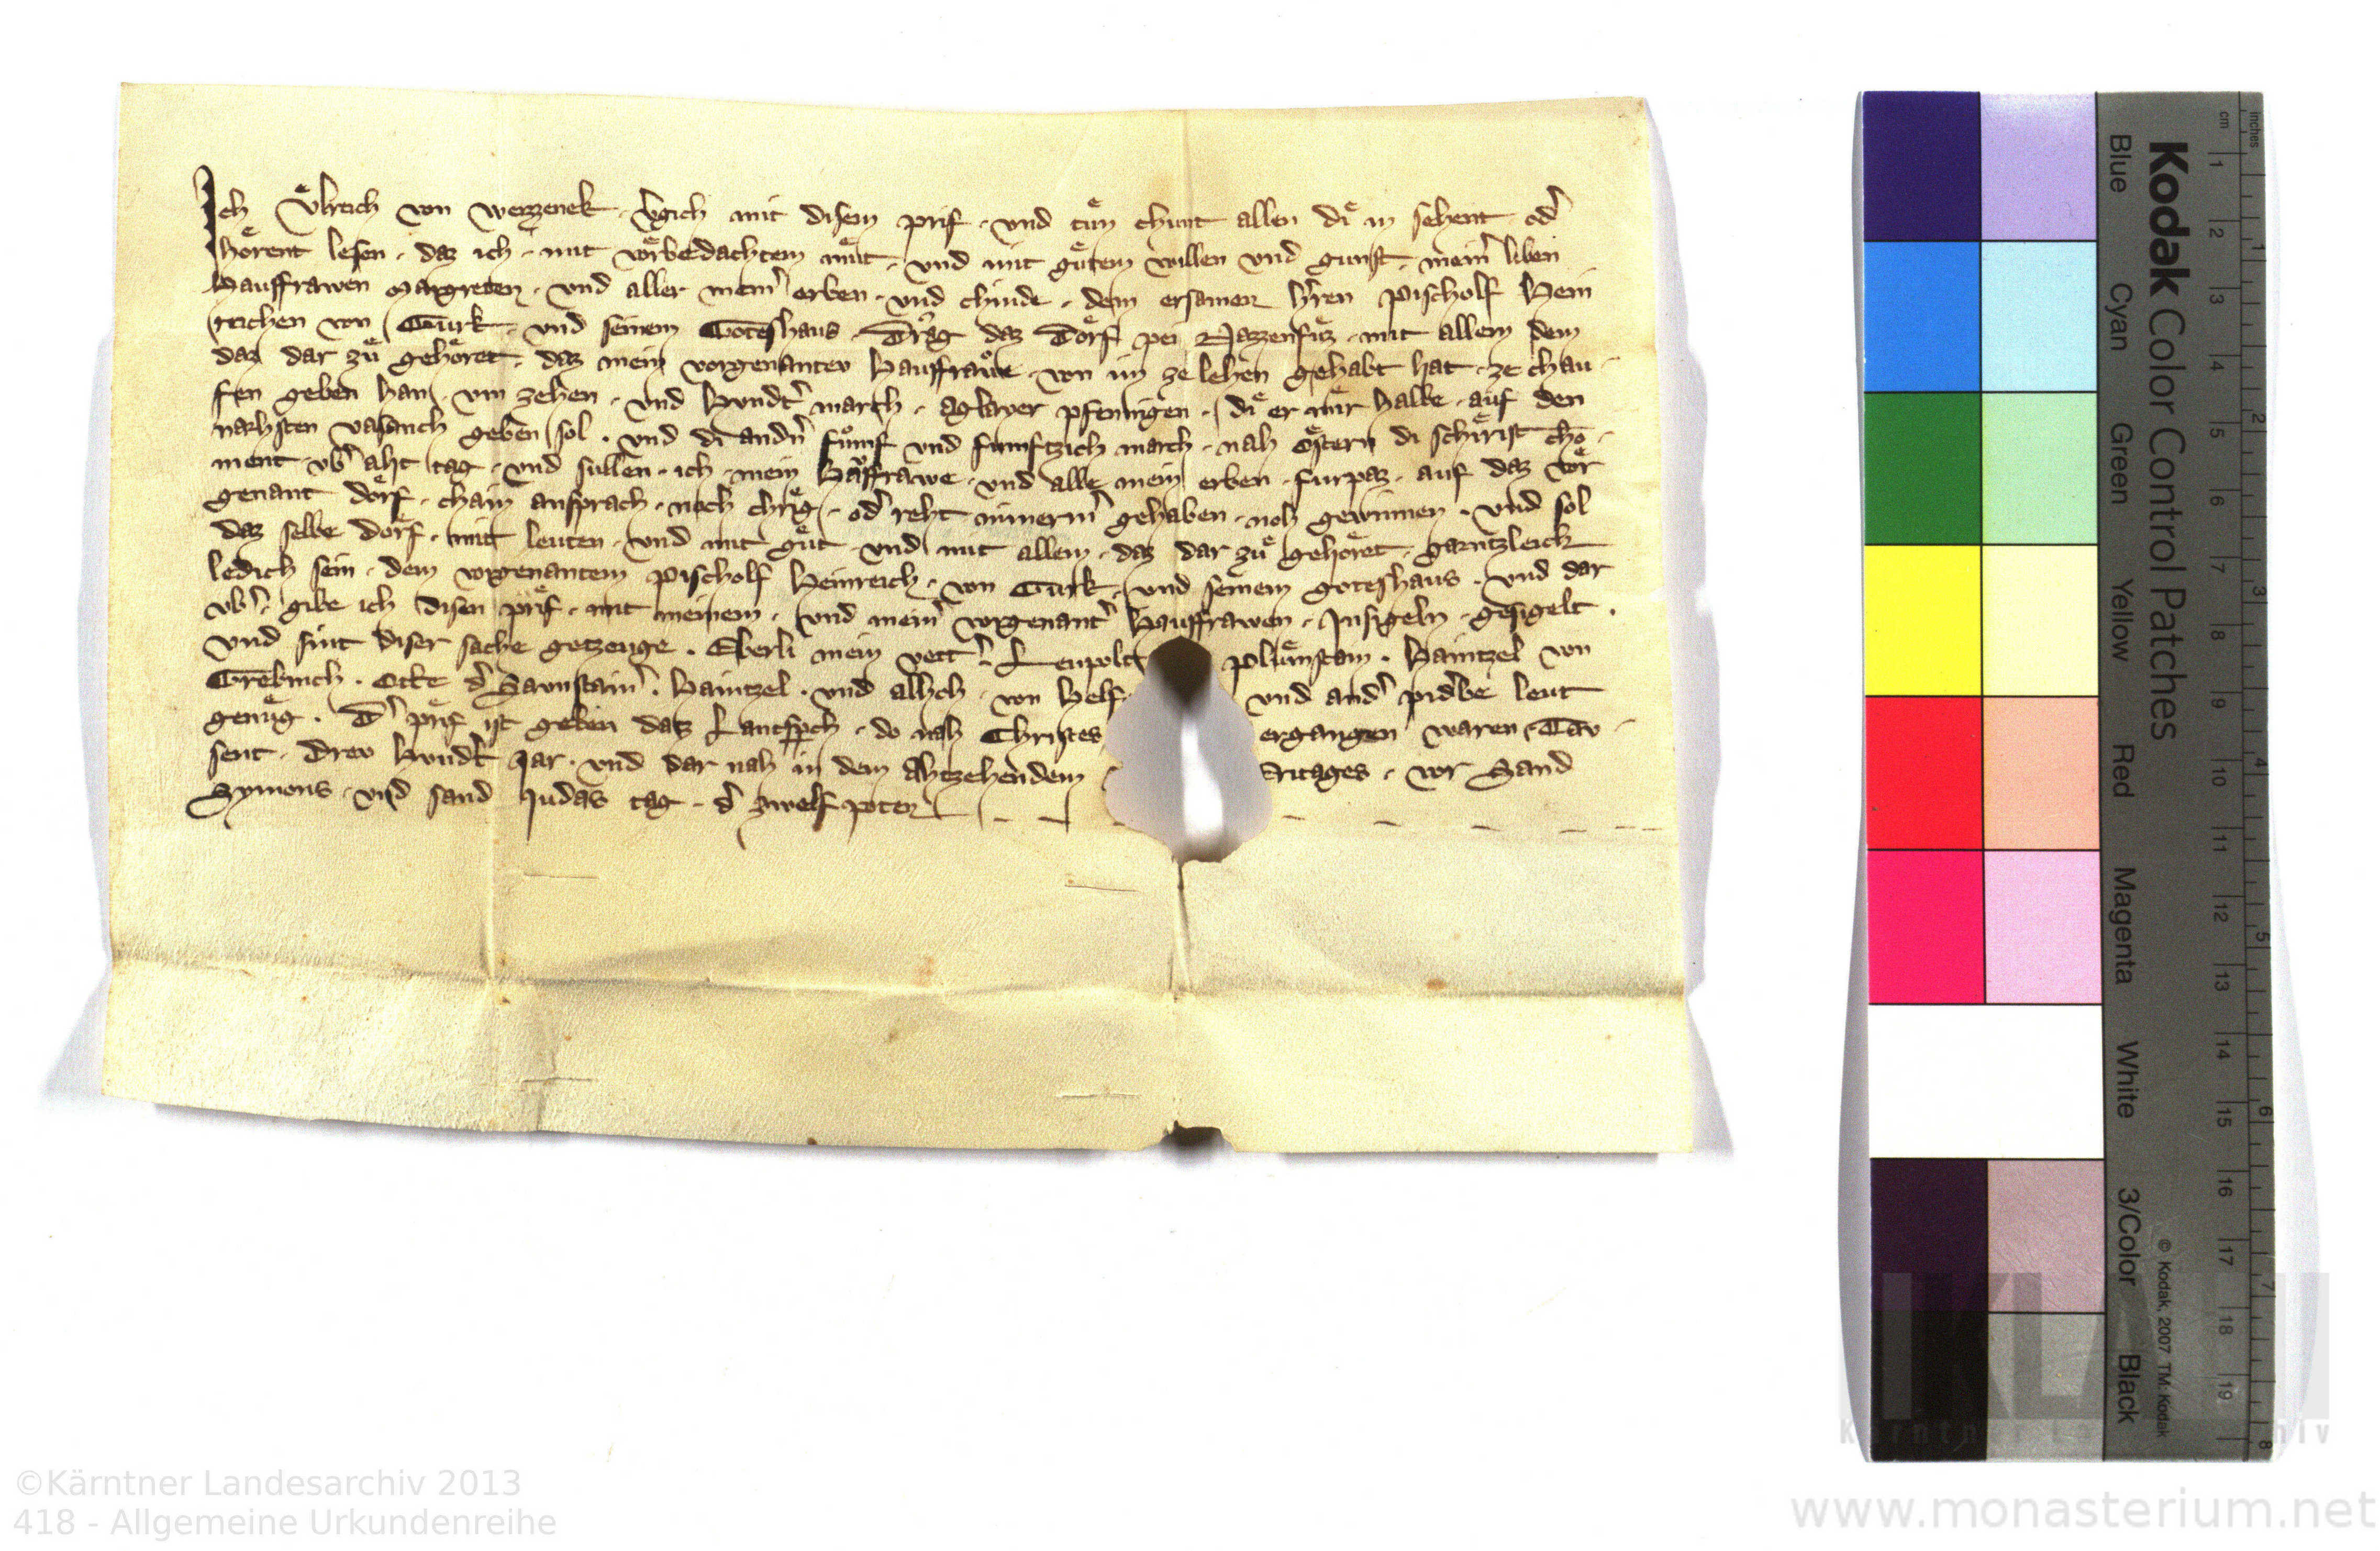 Ich Vͤlreich von Werzenek · vgich mit disem prif · vnd tuͤn chunt allen diͤ in sehent · od̉
hoͤrent lesen · daz ich · mit voͤrbedachtem muͤt · vnd mit guͤtem willen vnd gunst · mein̉ liben
Hausfrawen Margreten · vnd aller mein̉ erben · vnd chinde · dem ersamen h̉ren Pischolf Hein
reichen von Gurk · vnd seinem Goteshaus · daz Doͤrf pei Nazzenfuͤz · mit allem dem
daz dar zuͤ gehoͤret · daz mein vorgenantev Hausfrawe · von im ze lehen gehabt hat · ze chau ·
fen geben han · vm zehen · vnd Hvndt̉ march · aglayer pfenningen · diͤ er mir halbe · auf den
nachsten vasanch geben sol · vnd di andn̉ fuͤmf vnd fumftzich march · nah oͤstern di schirist cho ·
ment vb̉ aht tag · vnd sullen · ich · mein Hausfrawe · vnd alle mein erben · furpaz · auf daz voͤr
genant doͤrf · chain ansprach · noch chrig · od̉ reht nimerm̉ gehaben · noh gewinnen · vnd sol
daz selbe doͤrf · mit leuten · vnd mit guͤt · vnd mit allem · daz dar zuͤ gehoͤret · gantzleich
ledich sein · dem vorgenantem Pischolf Heinreich · von Gurk · vnd seinem goteshaus · vnd dar
vb̉ · gibe ich disen priͤf · mit meinem · vnd mein̉ vorgenant̉ Hausfrawen · Insigeln · gesigelt ·
vnd sint diser sache getzeuge · Eberli mein vett̉ · Leupolt Haintzel von
Ocke d̉ Saunstain̉ · Haintzel · vnd albch · von Helf vnd and̉ pid̉be leut
genuͤg · D̉ priͤf ist geben datz Lantsp̱ch · do nah Christes ergangen waren · Tav ·
sent · Drev hvndt̉ Jar · vnd dar nah in dem ahtzehendem Eritages · vor Sand
Symons · vnd sand Judas tag · d̉ zwelf poten
Kodak Color Control Patches
Blue Cyan Green Yellow Red Magenta White 3/Color Black
© Kodak, 2007 TM: Kodak
cm 1 2 3 4 5 6 7 8 9 10 11 12 13 14 15 16 17 18 19
inches 1 2 3 4 5 6 7 8
©Kärntner Landesarchiv 2013
418 - Allgemeine Urkundenreihe
www.monasterium.net